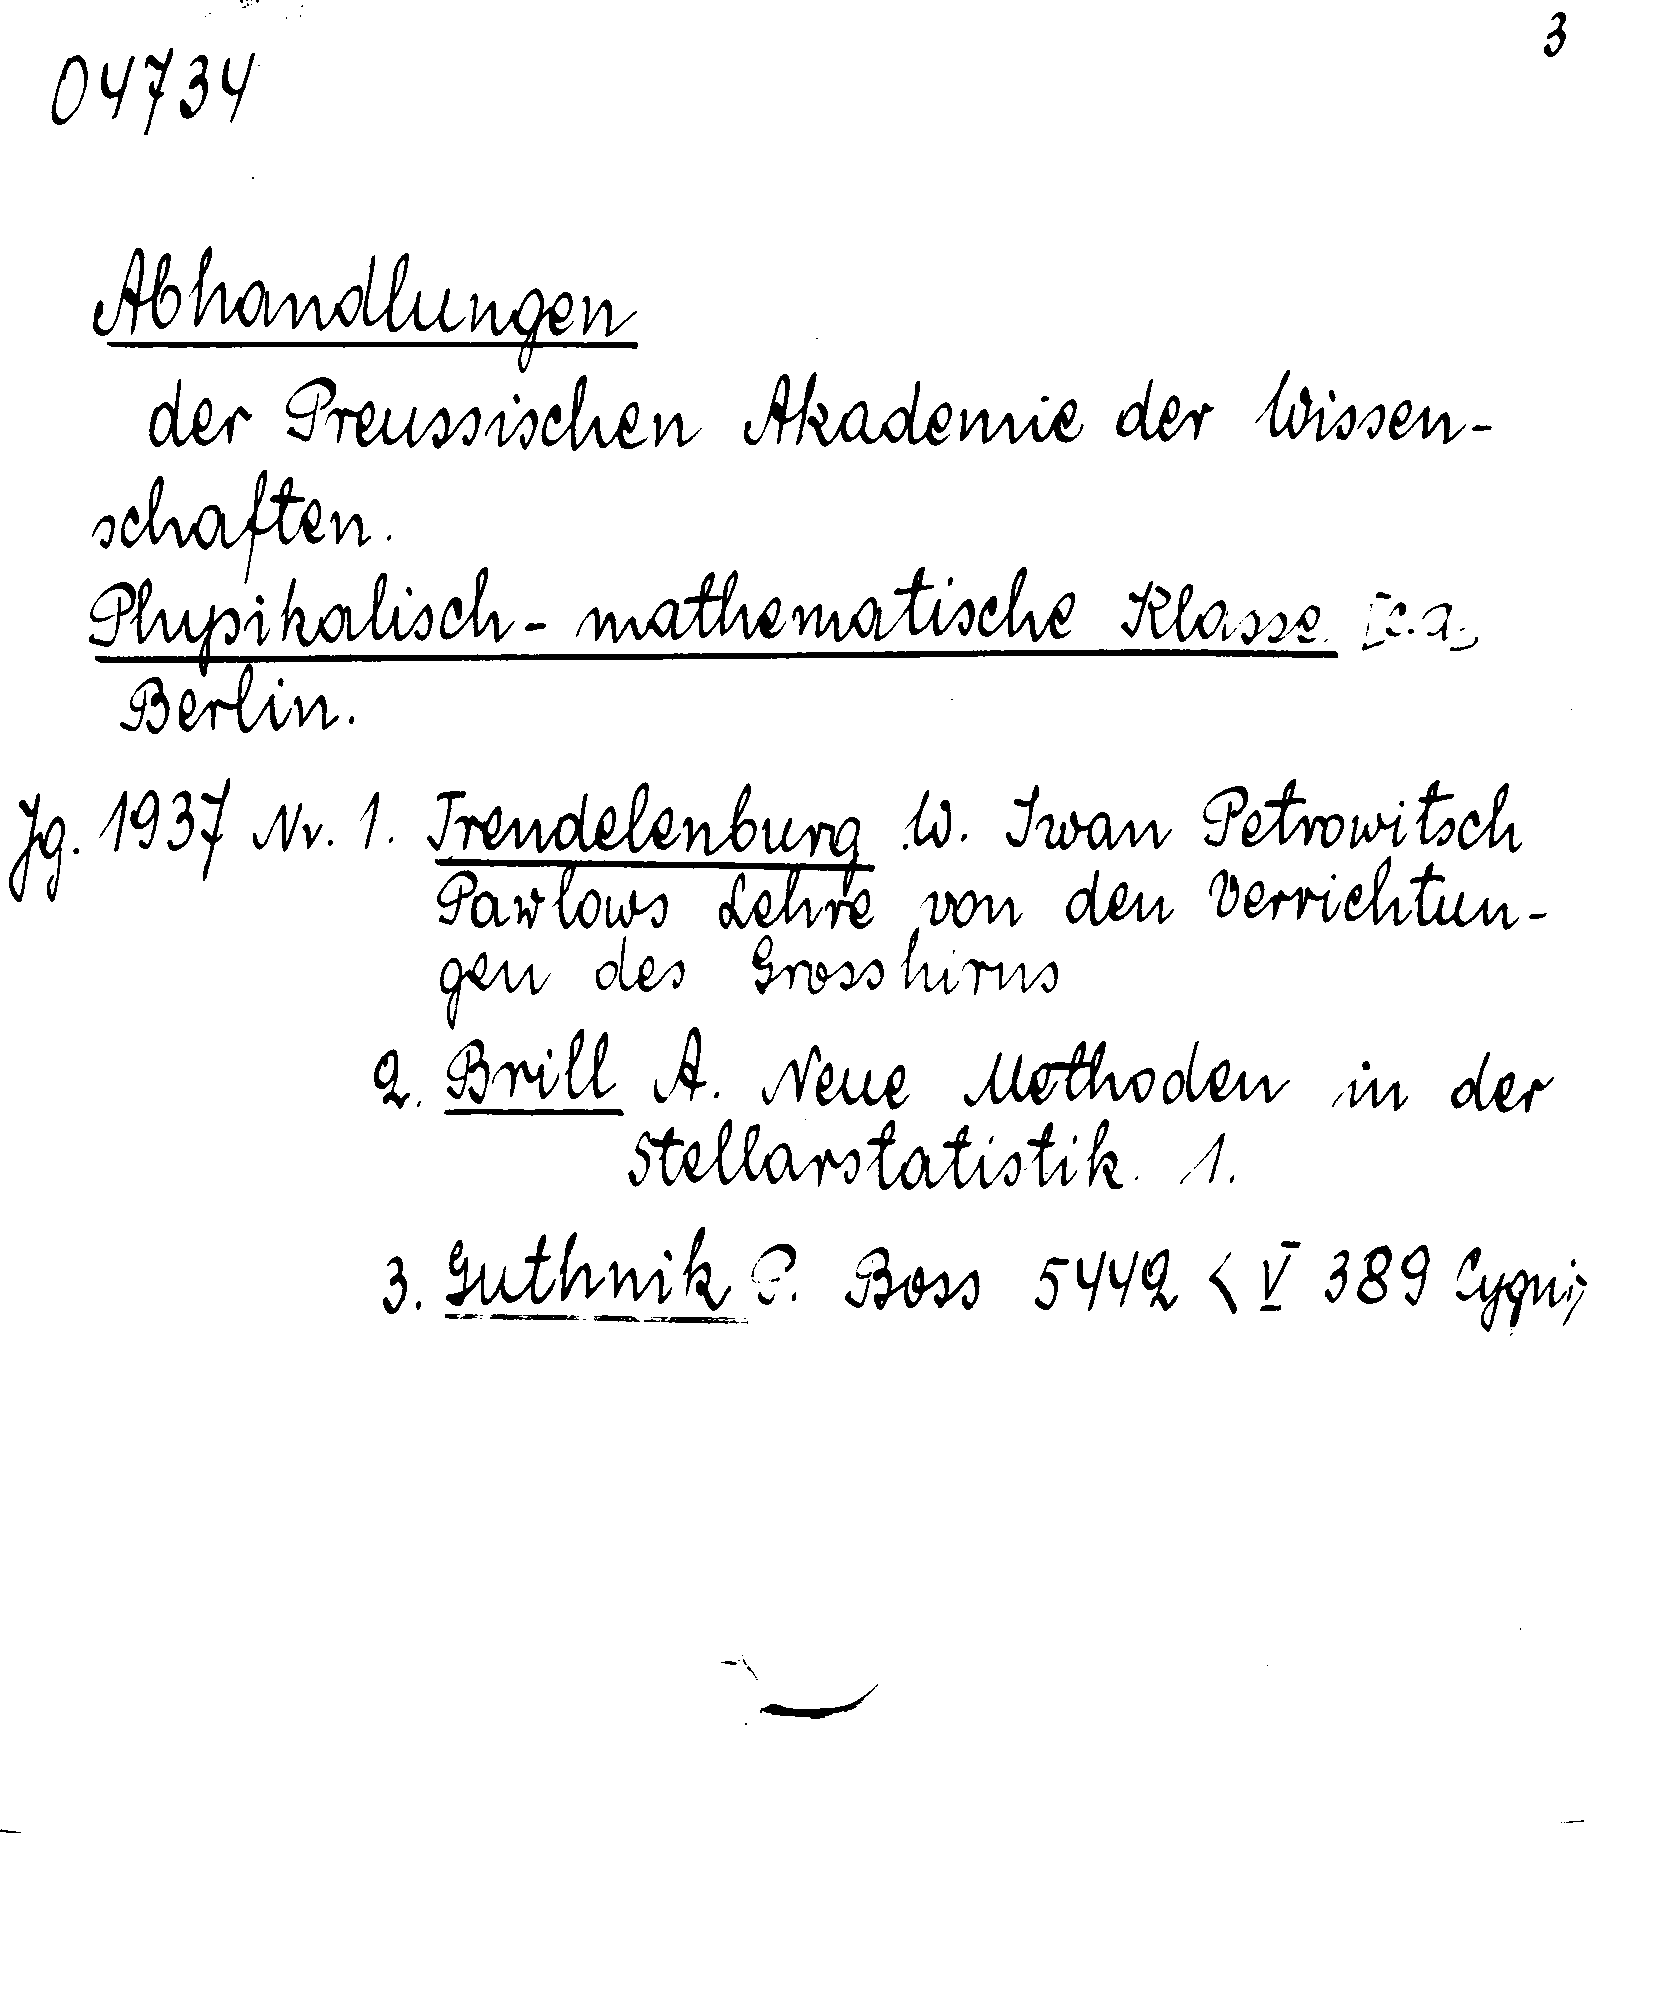 3
04734
Abhandlungen
der Preussischen Akademie der Wissen-
schaften.
Physikalisch-mathematische Klasse.
Berlin.
Jg. 1937 Nr. 1. Trendelenburg W. Iwan Petrowitsch
Pawlows Lehre von den Verrichtun-
gen des Grosshirns
2. Brill A. Neue Methoden in der
Stellarstatistik. 1.
3. Guthnik P. Boss 5442 < V 389 Cygni>